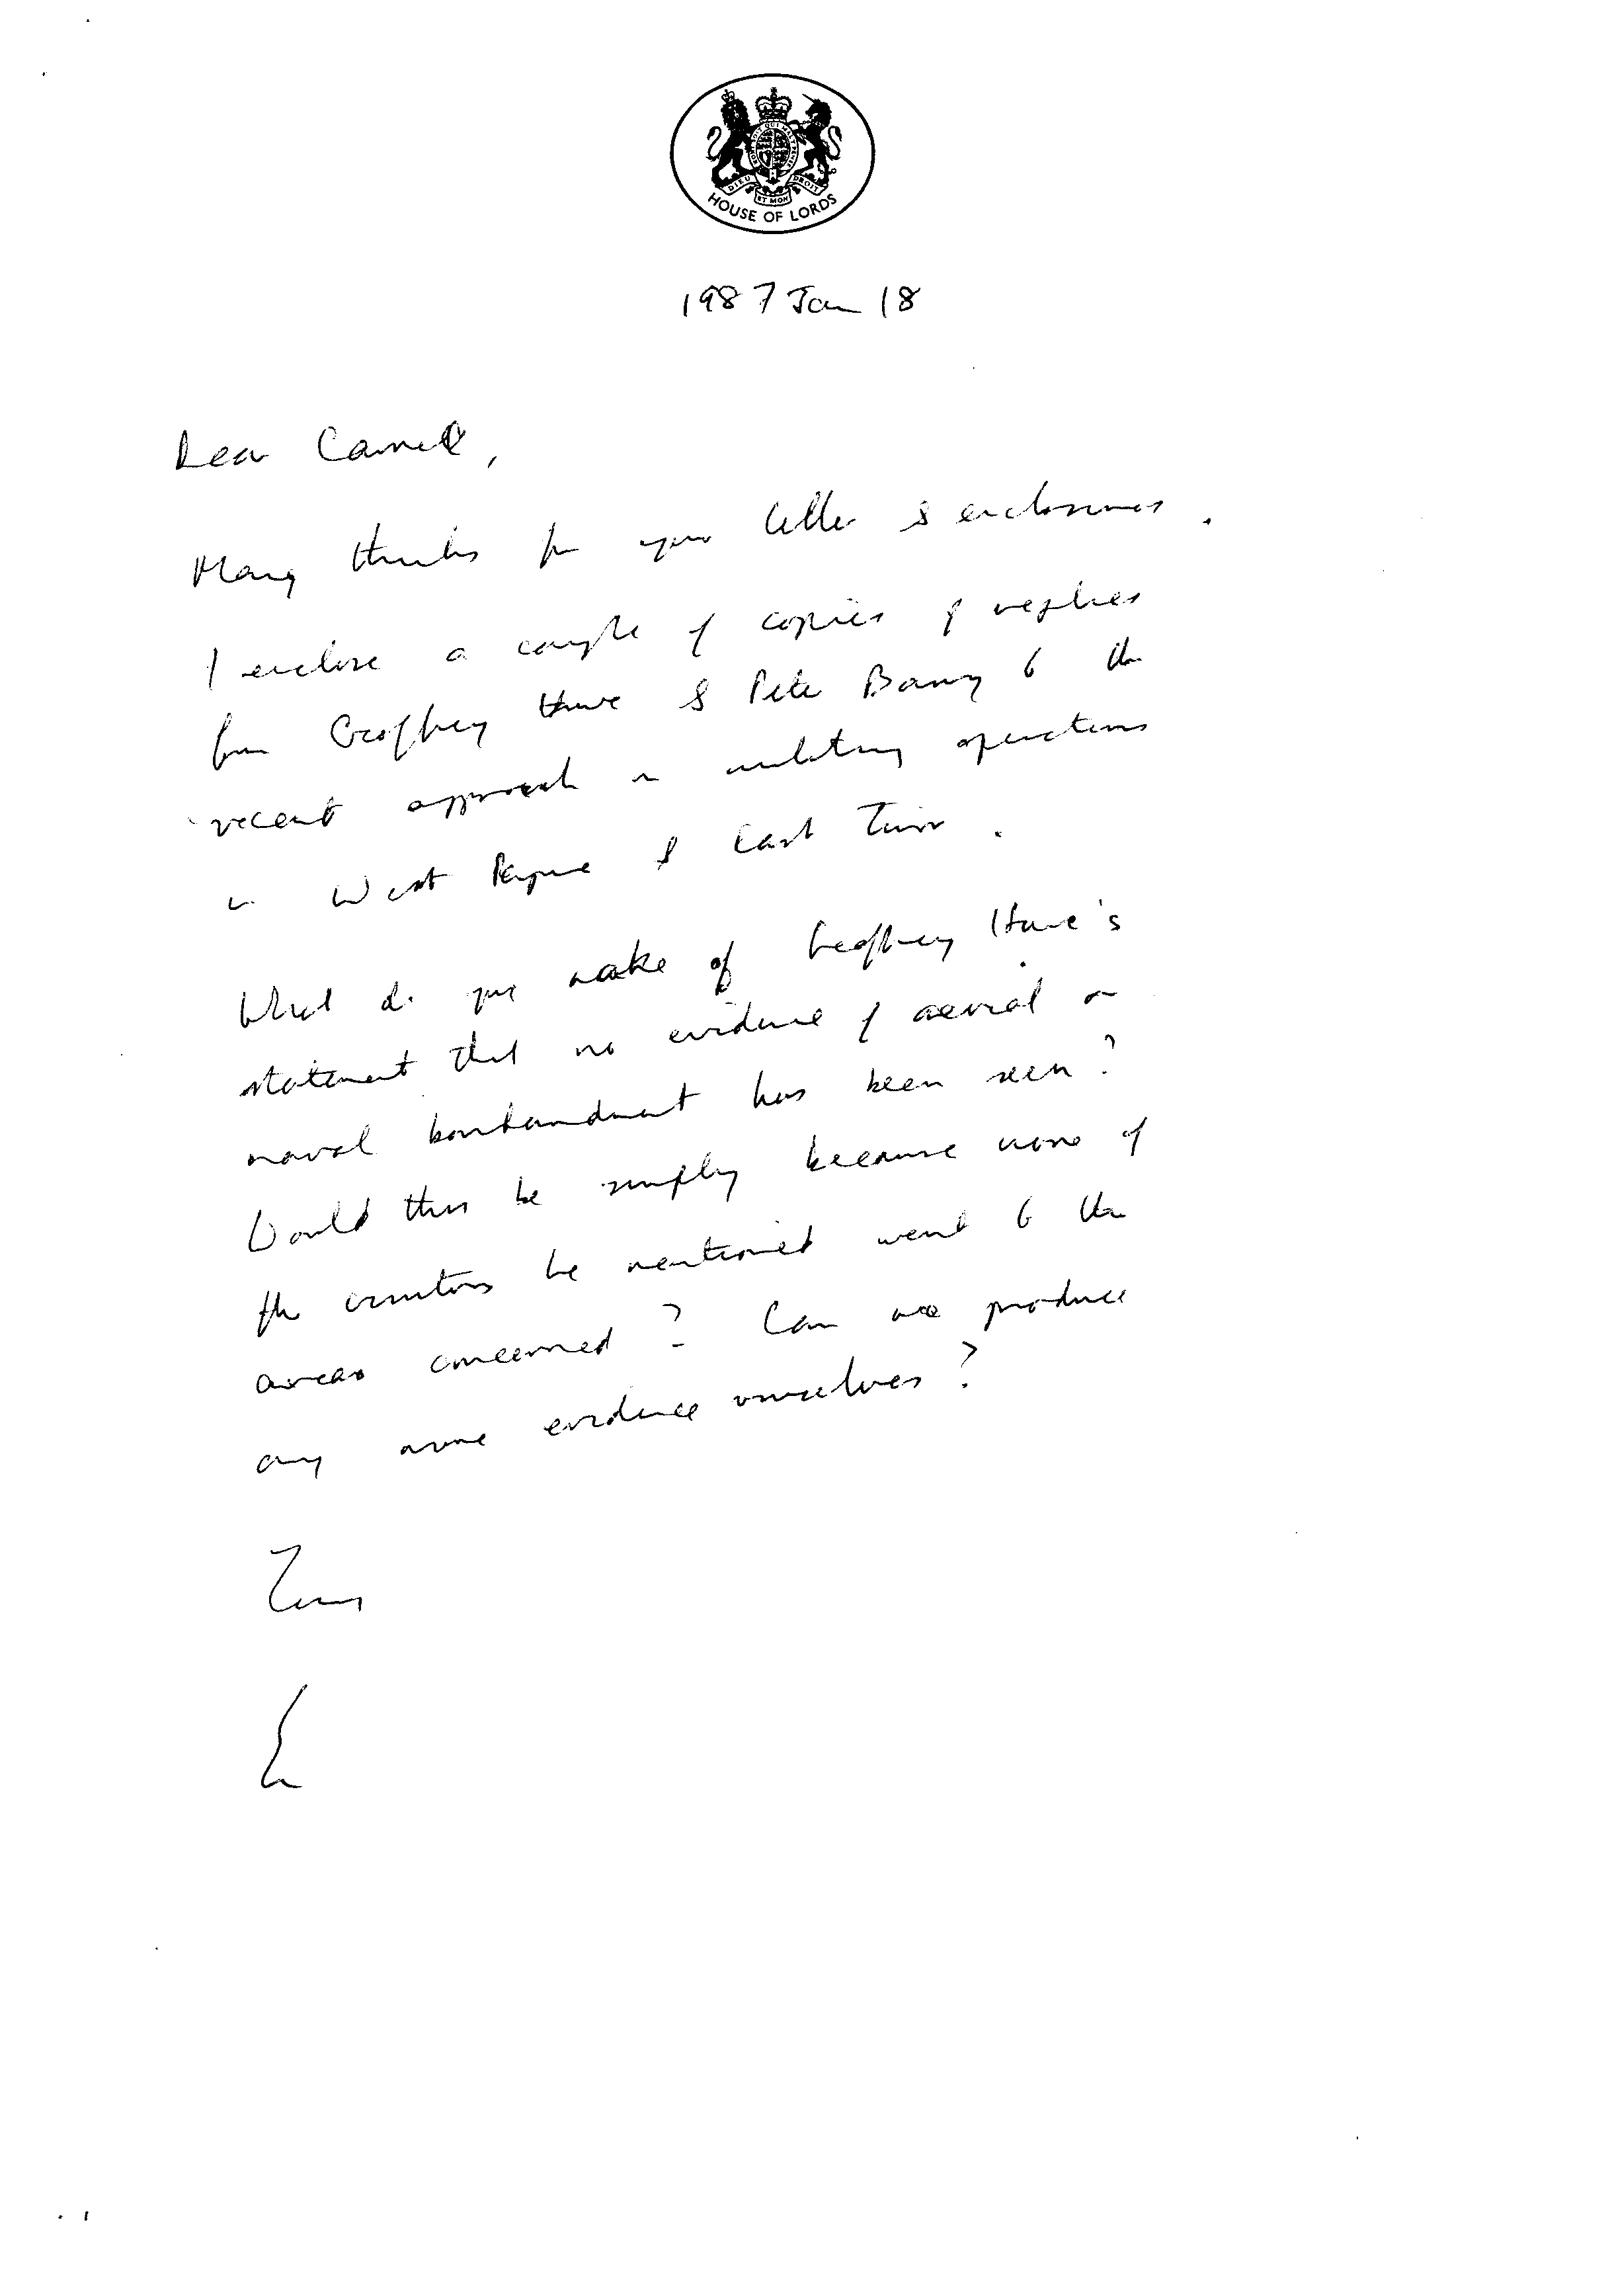 DIEU ET MON DROIT
HOUSE OF LORDS
1987 Jan 18
Dear Carmel,
Many thanks for your letter & enclosures.
I enclose a couple of copies of replies
from Geoffrey Howe & Peter Barry to the
recent approach on military operations
in West Papua & East Timor.
What do you make of Geoffrey Howe's
statement that no evidence of aerial or
naval bombardment has been seen?
Would this be simply because none of
the visitors he mentioned went to the
areas concerned? Can we produce
any more evidence ourselves?
Yours